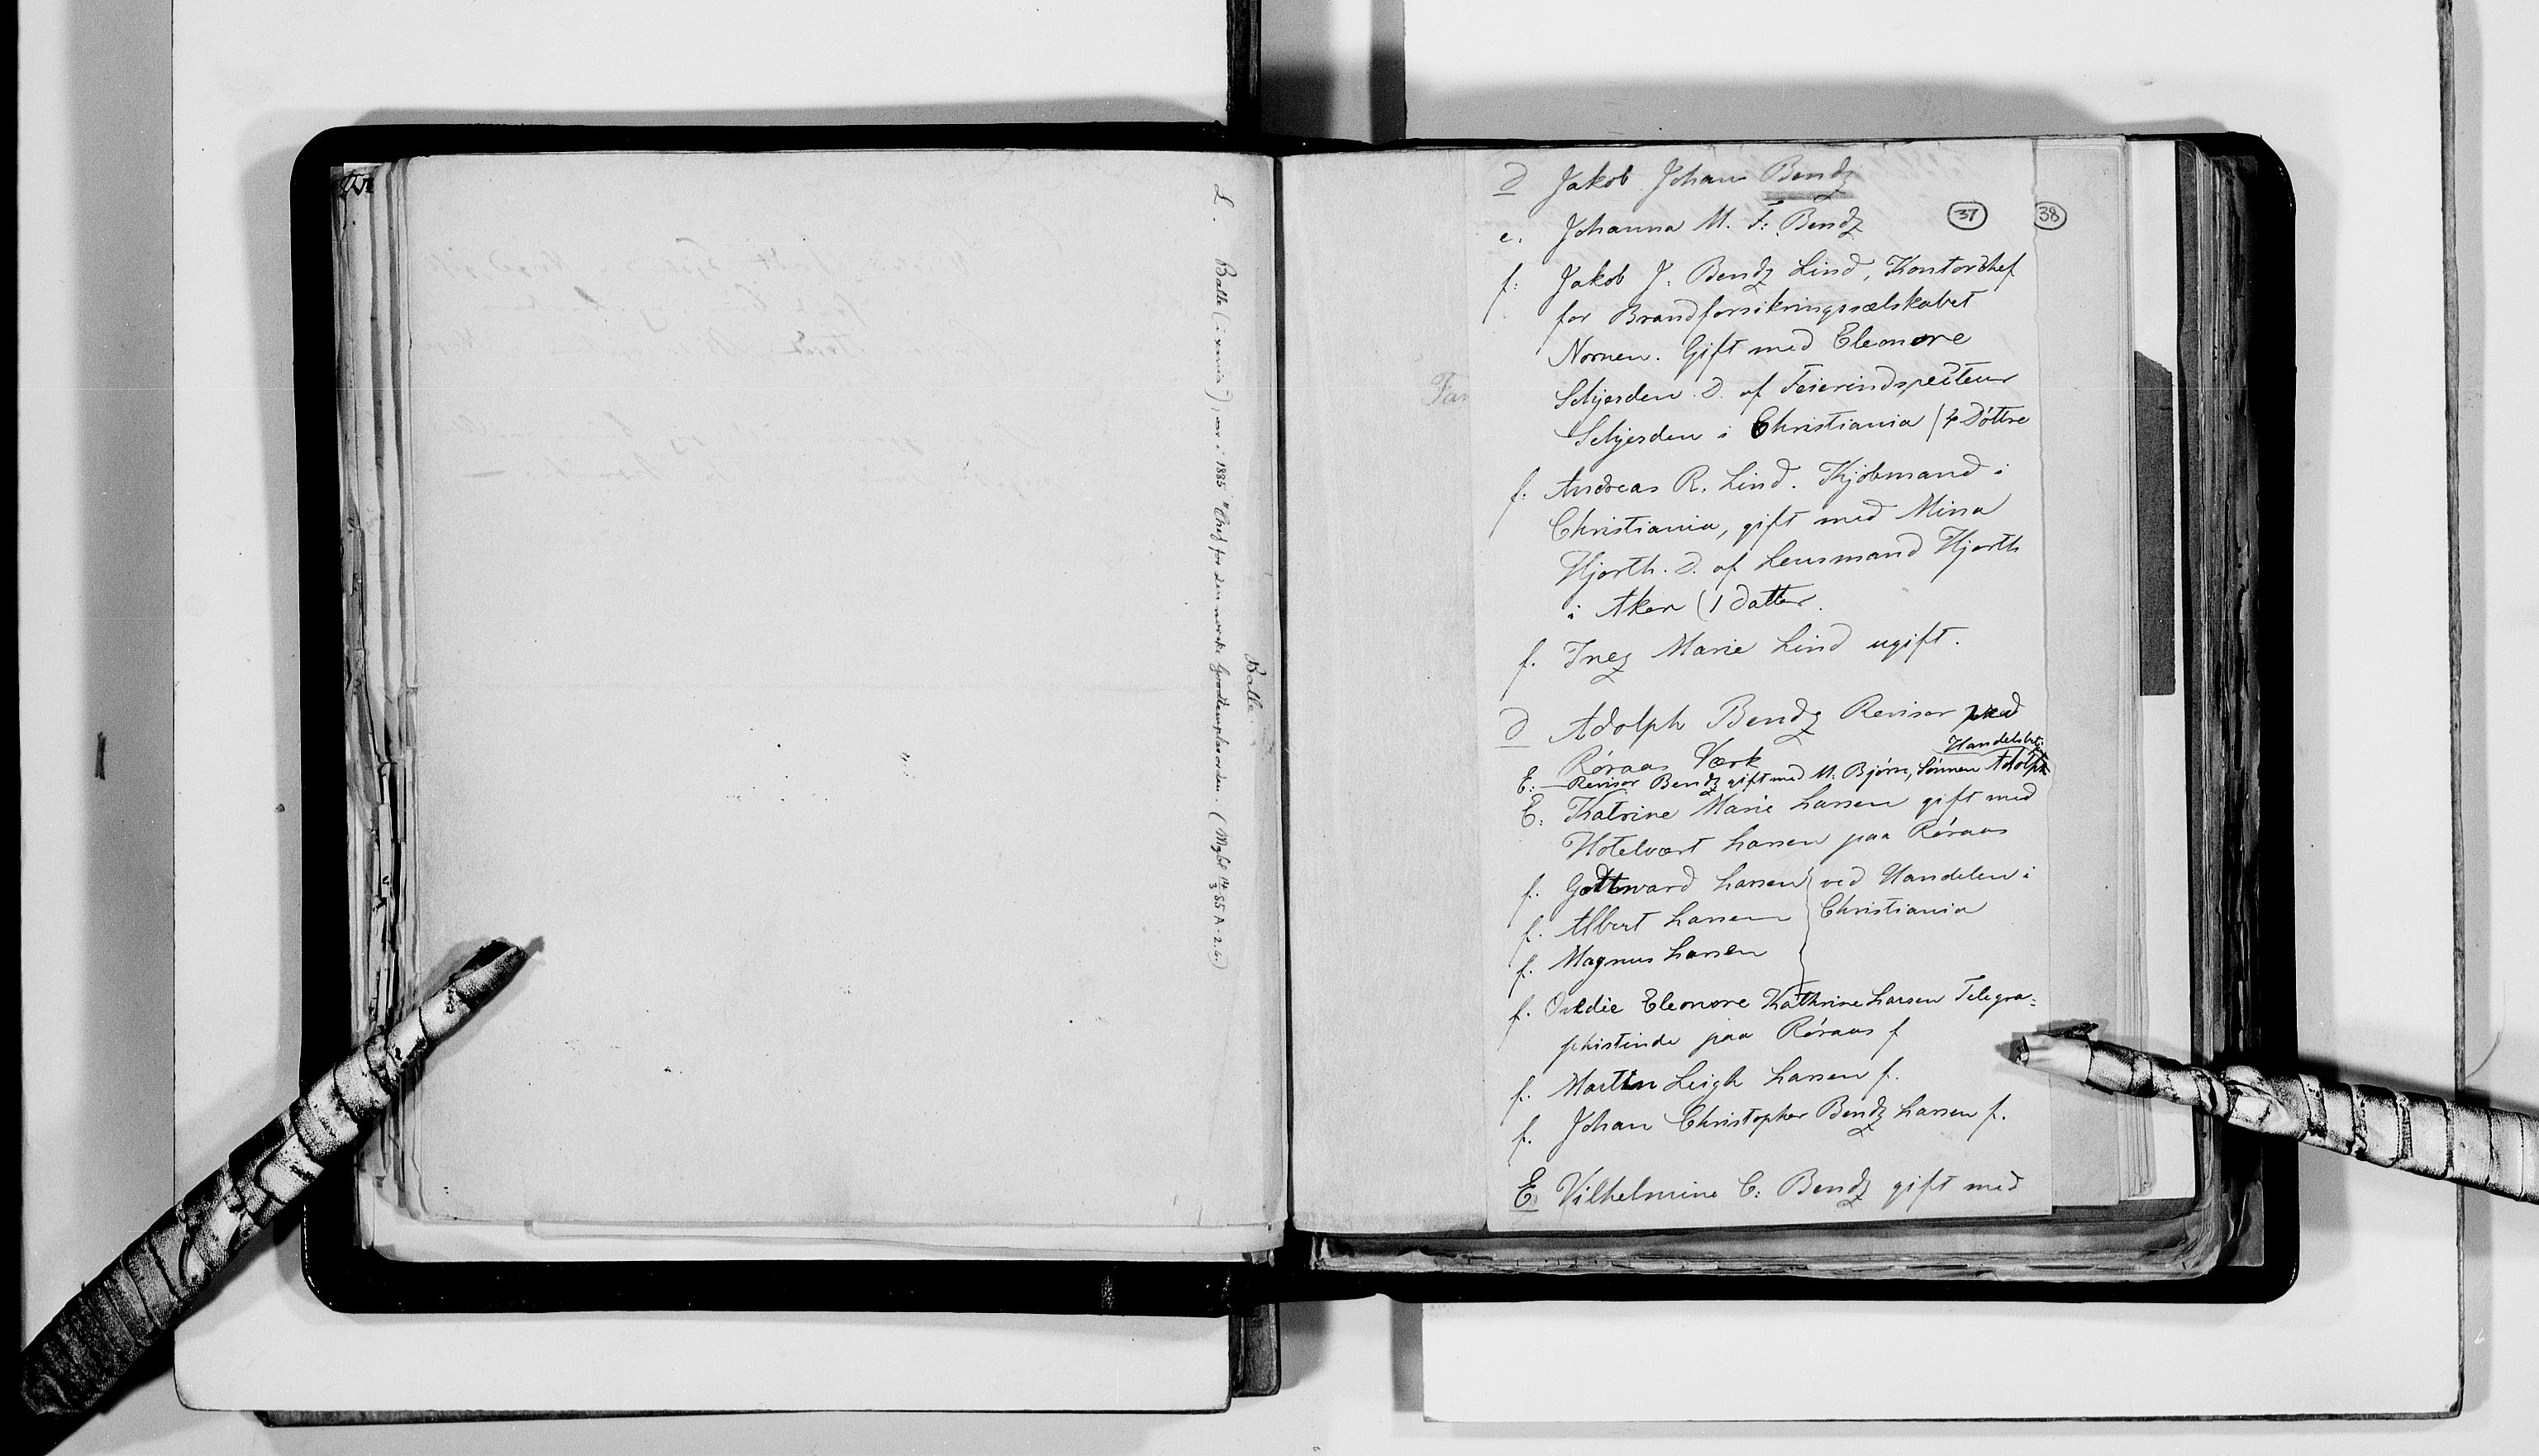 Balle.
L. Balle (i rania), var i 1885 "Chef for den norske Goodtemplarorden. (Mgbl 14/3 85 A. 2. 6.)
Far
37
38
D Jakob Johan Bendz
e. Johanna M. F: Bendz
f: Jakob J: Bendz Lind, Kontorchef
for Brandforsikringsselskabet
Nornen. Gift med Eleonore
Schjerden. D. af Feierindspecteur
Schjerden i Christiania (4 Döttre
f. Andreas R. Lind. Kjöbmand i
Christiania, gift med Mina
Hjorth. D. af Lensmand Hjorth
i Aker (1 Datter.
f. Inez Marie Lind ugift.
D Adolph Bendz Revisor ved
Röraas Værk
Handelsbetj:
E: — Revisor Bendz gift med M. Björn, Sönnen Adolph
E: Katrine Marie Larsen gift med
Hotelvært Larsen paa Röraas
f. Gottward Larsen } ved Handelen i
f. Albert Larsen Christiania
f. Magnus Larsen
f. Ovidie Eleonore Kathrine Larsen Telegra=
phistinde paa Röraas f
f. Martin Leigh Larsen f.
f. Johan Christopher Bendz Larsen f.
E) Vilhelmine C: Bendz gift med